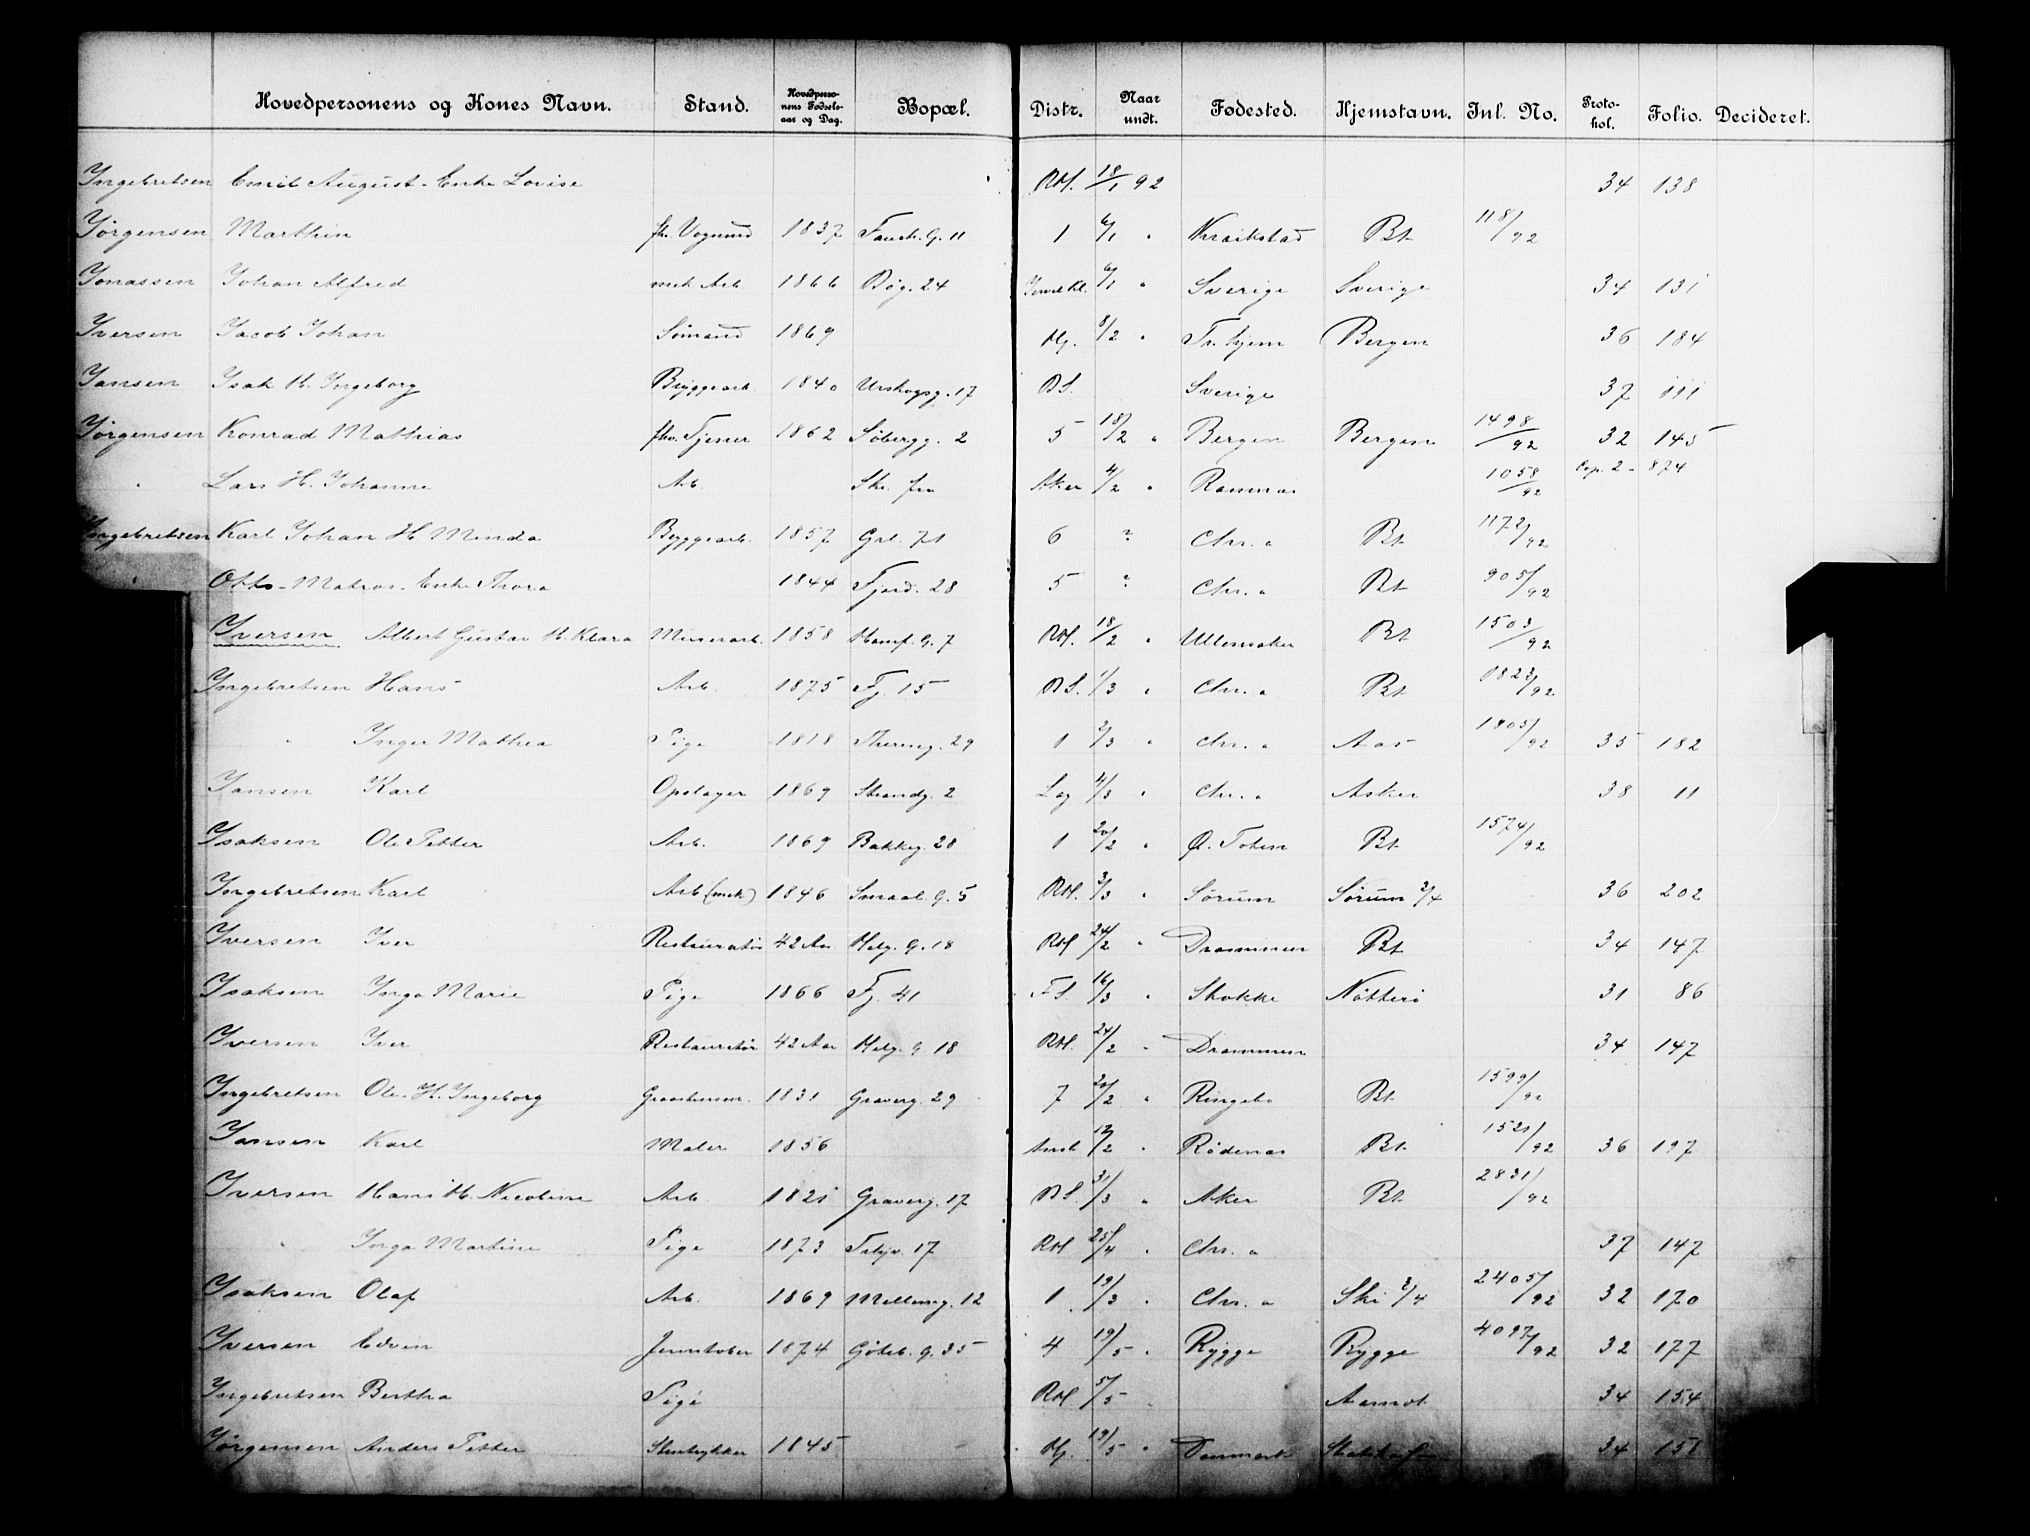 Hovedpersonens og Kones Navn. Stand. Hovedpersonens Fødselsaar og Dag. Bopæl. Distr. Naar undt. Fødested. Hjemstavn. Inl. No. Protokol. Folio. Decideret.
Ingebretsen Emil August - Enke Lovise RM. 18/1 92 34 138
Jørgensen Marthin fhv. Vognmd 1837 G. 11 1 6/1 " Kraakstad Bt 118/92
Jonassen Johan Alfred mek Arb. 1866 Bøg. 24 6/1 " Sverige Sverige 34 131
Iversen Jacob Johan Sømand 1869 8/2 " Tr.hjem Bergen 36 184
Jansen Isak H. Ingeborg Bryggearb. 1840 Urskogsg. 17 BS. Sverige 37 111
Jørgensen Konrad Mathias fhv. Tjener 1862 Søbergg. 2 5 18/2 " Bergen Bergen 1498/92 32 145
" Lars H. Johanne Arb. Aker 4/2 " Ramnæs 1058/92 Cop. 2 - 874
Ingebretsen Karl Johan H Minda Bryggearb. 1857 Grl. 71 6 ? Chr.a Bt 1172/92
" Otto - Matros - Enke Thora 1844 Fjerd. 28 5 ? Chr.a Bt 905/92
Iversen Albert Gustav H. Klara Murerarb. 1858 G. 7 RM. 18/2 " Ullensaker Bt 1503/92
Ingebretsen Hans Arb. 1875 Fj. 15 BS. 1/3 " Chr.a Bt 1823/92
" Inger Mathea Pige 1818 Thereseg. 29 1 2/3 " Chr.a Aas 1805/92 35 182
Jansen Karl Opslager 1869 Strandg. 2 Lag 4/3 " Chr.a Asker 38 11
Isaksen Ole Petter Arb. 1869 Bakkeg. 28 1 20/2 " Ø. Toten Bt 1574/92
Ingebretsen Karl Arb (mek) 1846 Smaal. G. 5 RM. 3/3 " Sørum Sørum 2/4 36 202
Iversen Iver Restauratør 42 Aar Helg. G. 18 RM 24/2 " Drammen Bt 34 147
Isaksen Inga Marie Pige 1866 Fj. 41 FS. 16/3 " Stokke Nøtterø 31 86
Iversen Iver Restauratør 42 Aar Helg. G. 18 RM. 24/2 " Drammen 34 147
Ingebretsen Ole H. Ingeborg 1831 Graverg. 29 7 20/2 " Ringebo Bt 1599/92
Jansen Karl Maler 1856 12/2 " Rødenæs Bt 1521/92 36 197
Iversen Hans H. Nicoline Arb. 1821 Graverg. 17 BS. 31/3 " Aker Bt 2831/92
" Inga Martine Pige 1873 17 RM 25/4 " Chr.a 37 147
Isaksen Olaf Arb. 1869 Mellemg. 12 1 19/3 " Chr.a Ski 2/4 2405/92 32 170
Iversen Edvin Jernstøber 1874 Gøteb. G. 35 4 19/5 " Rygge Rygge 4097/92 32 177
Ingebretsen Bertha Pige RM 5/5 Aamot 34 154
Jørgensen Anders Petter Stentrykker 1845 19/5 " Danmark 34 151